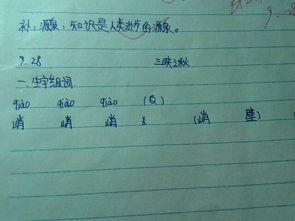 补:源泉:知识是人类进步的源泉。
9.28 三峡之秋
一.生字组词
qiào qiào qiào (Q)
峭 峭 峭 (峭 壁)